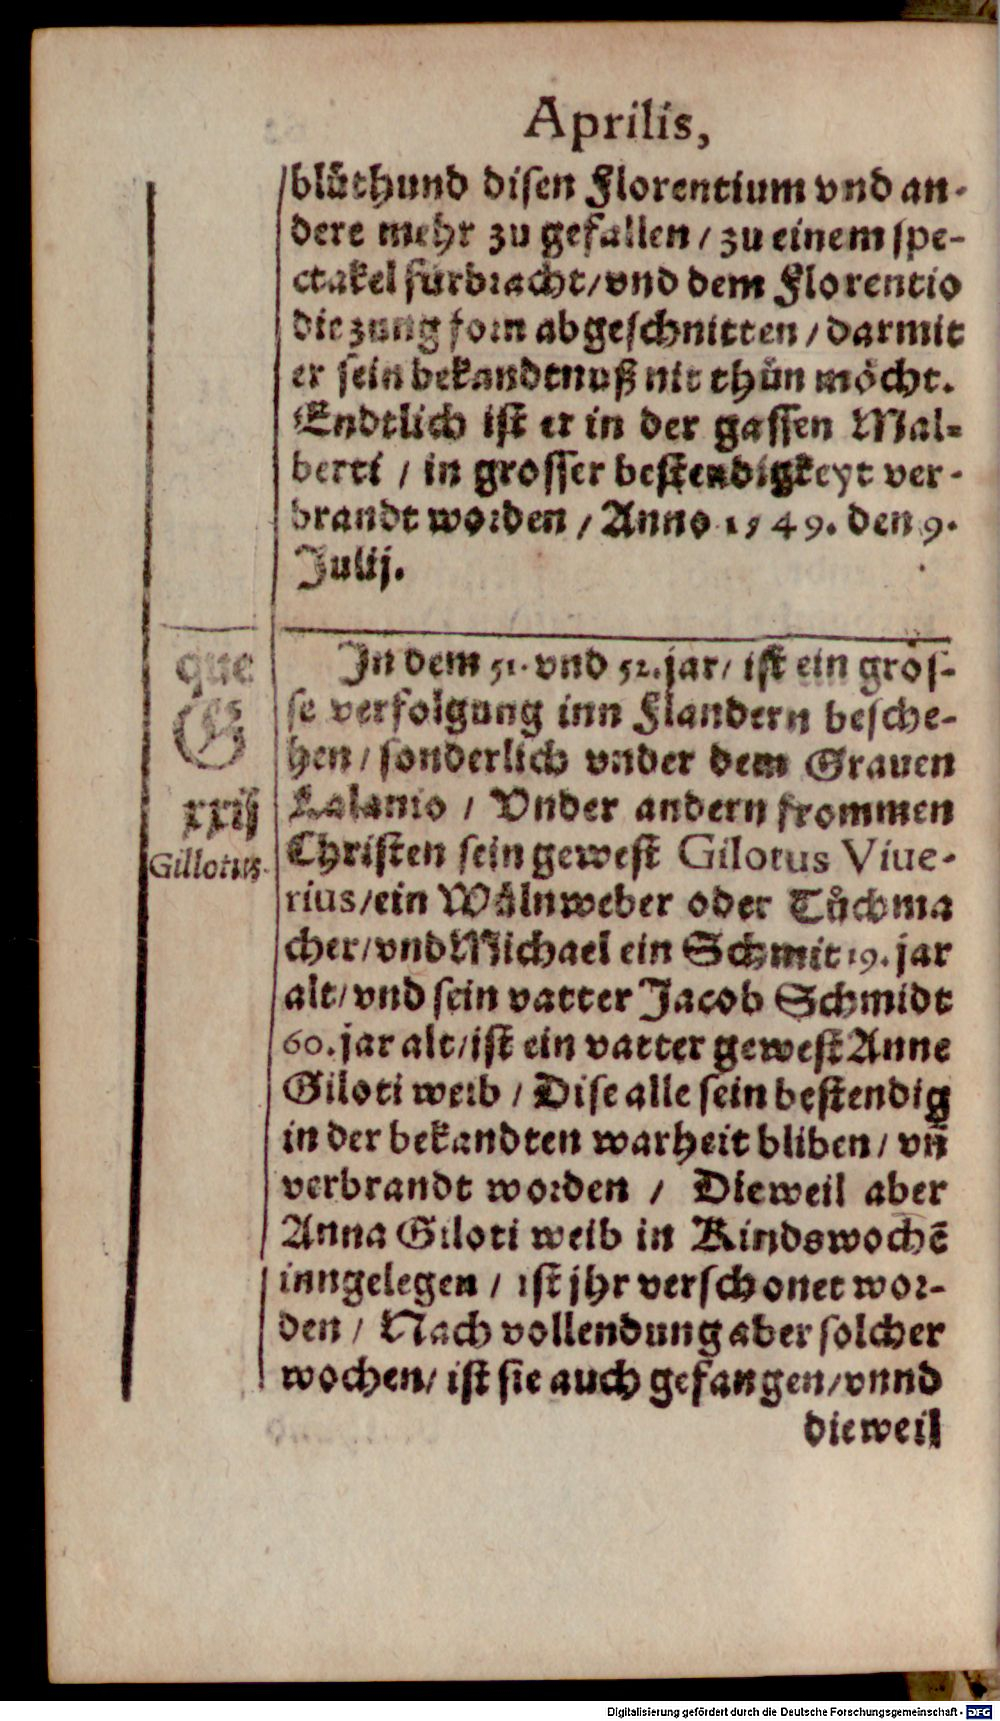 Aprilis,
blůthund disen Florentium vnd an-
dere mehr zu gefallen / zu einem spe-
ctakel fürbracht / vnd dem Florentio
die zung forn abgeschnitten / darmit
er sein bekandtnuß nit thůn möcht.
Endtlich ist er in der gassen Mal-
berti / in grosser bestendigkeyt ver-
brandt worden / Anno 1549. den 9.
Julij.
que
G
xxij
Gillotus.
In dem 51. vnd 52. jar / ist ein gros-
se verfolgung inn Flandern besche-
hen / sonderlich vnder dem Grauen
Kalanio / Vnder andern frommen
Christen sein gewest Gilotus Viue-
rius / ein Wůlnweber oder Tůchma
cher / vnd Michael ein Schmit 19. jar
alt / vnd sein vatter Jacob Schmidt
60. jar alt / ist ein vatter gewest Anne
Giloti weib / Dise alle sein bestendig
in der bekandten warheit bliben / vñ
verbrandt worden / Dieweil aber
Anna Giloti weib in Kindswochẽ
inngelegen / ist jhr verschonet wor-
den / Nach vollendung aber solcher
wochen / ist sie auch gefangen / vnnd
dieweil
Digitalisierung gefördert durch die Deutsche Forschungsgemeinschaft - DFG